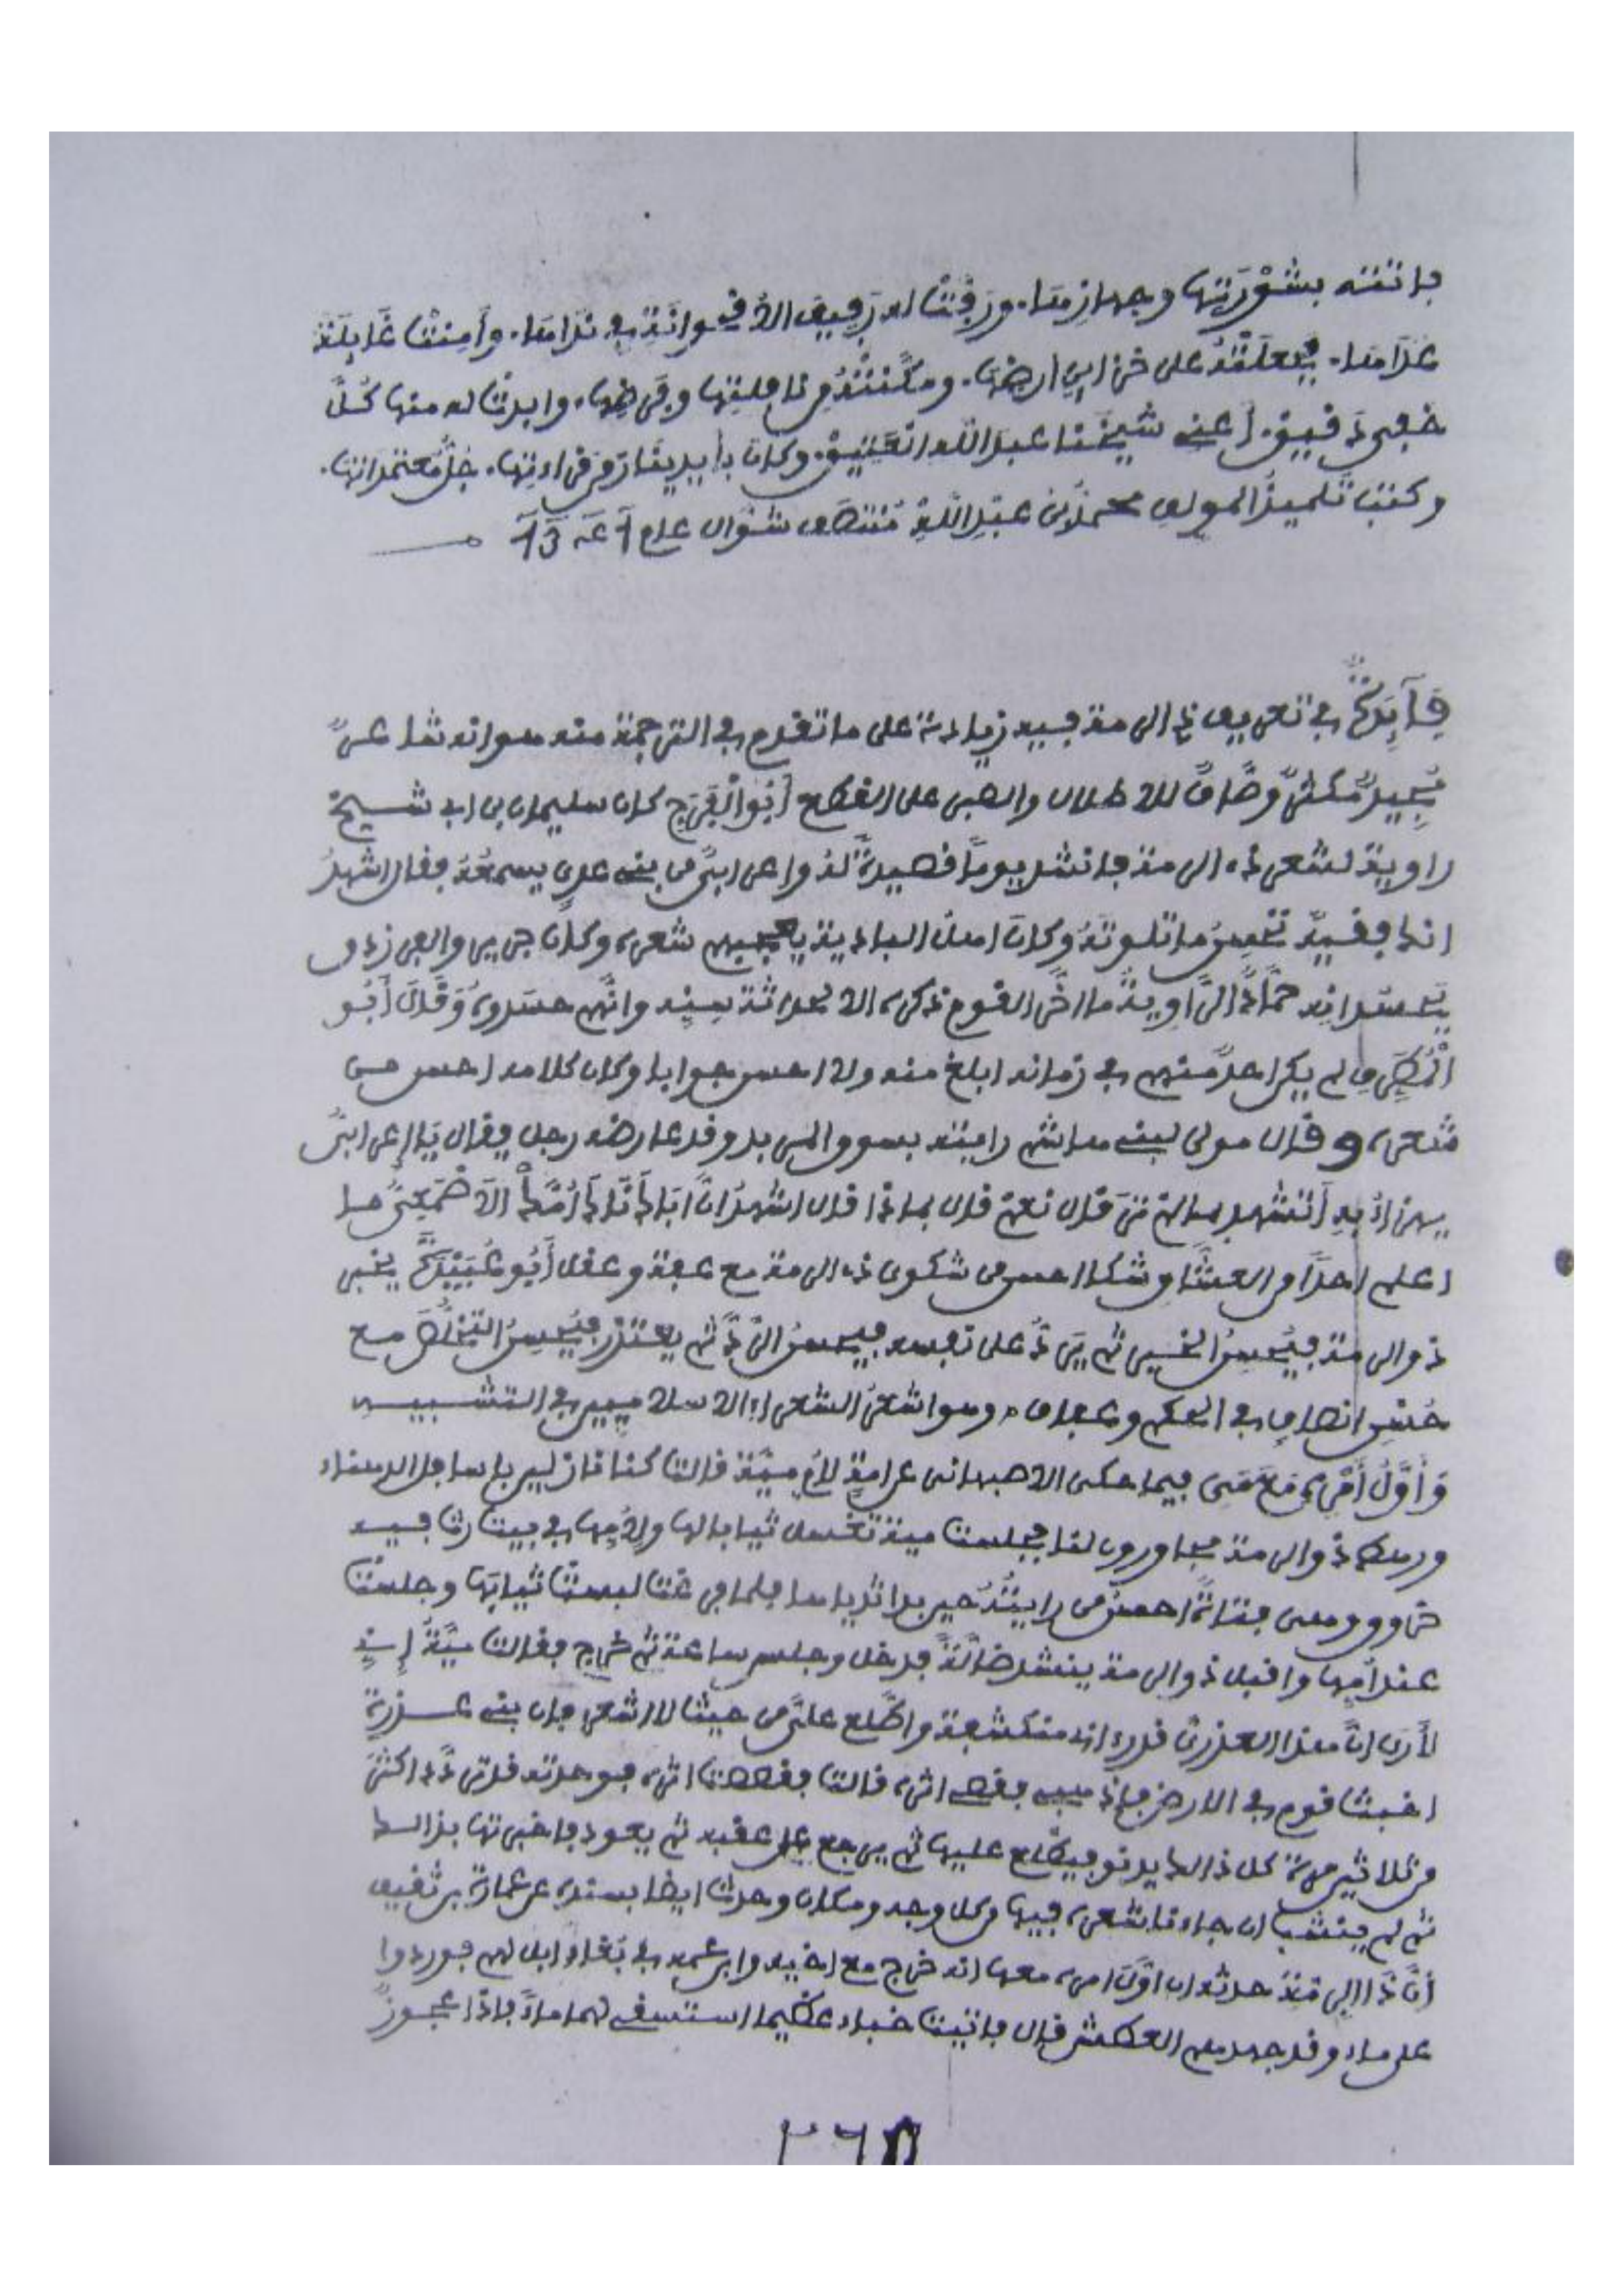 فاتته بشورتها وجهازها. ورقت له رقيق الاخوانة في ندامها. وأمنت غايلة
غلامها. فجعلته على خزاين ارضها. ومكنته من نافلتها وفرضها، وابدت له منها كل
خفي دقيق. أعني شيخنا عبد الله العتيق. وكان بأيدينا زمن قراءتها. جل معتمداتها.
وكتب تلميذ المولف محمد بن عبد الله منتصف شوال عام
فآئدة في تعريف ذى الرمة فيه زيادة على ما تقدم في الترجمة منه هو انه شاعر
مجيد مكثر وصاف للاطلال والصبر على القطع أبو الفرج كان سليمان بن ابي شيخ
راوية لشعر ذى الرمة فانشد يوما قصيدة له واعرابي من بني عدي يسمعه فقال اشهد
انك لفقيه تحسن ما تتلوه وكان اهل البادية يعجبهم شعره وكان جرير والفرزدق
يحسدانه حماد الراوية ما اخر القوم ذكره الا لحداثة سنه وانهم حسدوه وقال أبو
المطرف لم يكن احد منهم في زمانه ابلغ منه ولا احسن جوابا وكان كلامه احسن من
شعره وقال مولى لبني هاشم رايته بسوق المربد وقد عارضه رجل فقال يا اعرابي
يهزأ به أتشهد بما لم تر قال نعم قال بماذا قال اشهد ان اباك ناك أمك الأصمعي ما
اعلم احدا من العشاق شكا احسن من شكوى ذى الرمة مع عفة وعقل أبو عبيدة يخبر
ذو الرمة فيحسن الخبر ثم يرد على نفسه فيحسن الرد ثم يعتذر فيحسن التخلص مع
حسن انصاف في الحكم وعفاف. وهو اشعر الشعراء الاسلاميين في التشبيه
وأول أمره مع مي فيما حكى الاصبهاني عن امة لأم مية قالت كنا نازلين باسافل الدهناء
ورهط ذو الرمة مجاورون لنا فجلست مية تغسل ثيابا لها ولأمها في بيت رث فيه
خروق وهي فتاة احسن من رايته حين بدا ثدياها فلما فرغت لبست ثيابها وجلست
عند أمها واقبل ذو الرمة ينشد ضالة فدخل وجلس ساعة ثم خرج فقالت مية إني
لأرى ان هذا العذري قد رءاني منكشفة واطلع علي من حيث لا اشعر فان بني عذرة
اخبث قوم في الارض فاذهبي فقصي اثره قالت فقصصت اثره فوجدته قد تردد اكثر
من ثلاثين مرة كل ذالك يدنو فيطلع عليها ثم يرجع على عقبه ثم يعود فاخبرتها بذالك
ثم لم ينشب ان جاءنا شعره فيها من كل وجه ومكان وحدث ايضا بسنده عن عمارة بن ثقيف
أن ذا الرمة حدثه ان اول امره معها انه خرج مع اخيه وابن عمه في بغاء ابل لهم فوردوا
على ماء وقد جهدهم العطش قال فاتيت خباء عظيما استسقي لهما ماء فاذا عجوز
٢٦٥